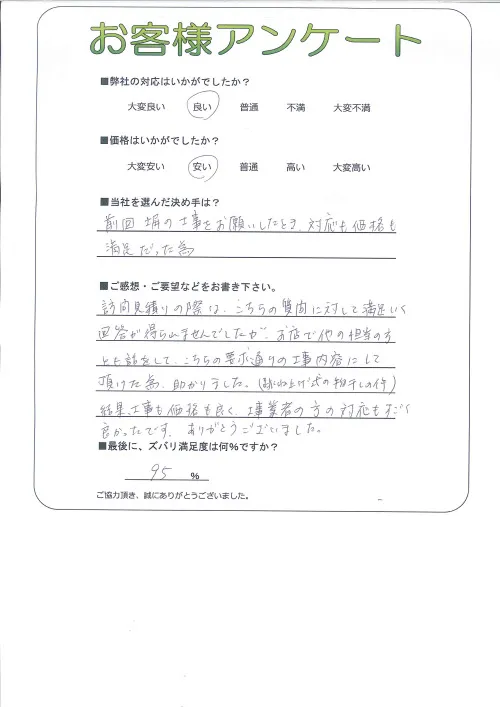 お客様アンケート
■弊社の対応はいかがでしたか？
大変良い 良い 普通 不満 大変不満
■価格はいかがでしたか？
大変安い 安い 普通 高い 大変高い
■当社を選んだ決め手は？
前回塀の工事をお願いしたとき、対応も価格も
満足だった為
■ご感想・ご要望などをお書き下さい。
訪問見積りの際は、こちらの質問に対して満足いく
回答が得られませんでしたが、お店で他の担当の方
とお話をして、こちらの要求通りの工事内容にして
頂けた為、助かりました。(跳ね上げ式の物干しの件)
結果、工事も価格も良く、工事業者の方の対応もすごく
良かったです。ありがとうございました。
■最後に、ズバリ満足度は何%ですか？
95 %
ご協力頂き、誠にありがとうございました。